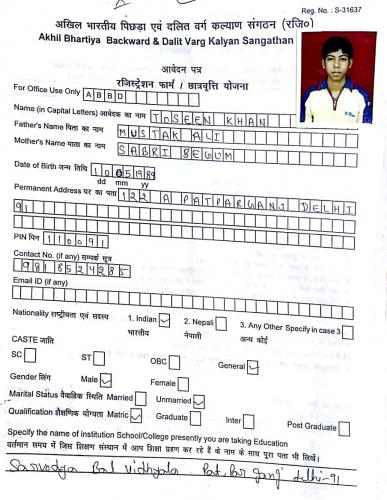 Reg. No. : S-31637
अखिल भारतीय पिछड़ा एवं दलित वर्ग कल्याण संगठन (रजि०)
Akhil Bhartiya Backward & Dalit Varg Kalyan Sangathan
आवेदन पत्र
रजिस्ट्रेशन फार्म / छात्रवृत्ति योजना
For Office Use Only A B B D
Name (in Capital Letters) आवेदक का नाम TOSEEN KHAN
Father's Name पिता का नाम MUSTAK ALI
Mother's Name माता का नाम SABRI BEGUM
Date of Birth जन्म तिथि 10 05 1989
dd mm yy
Permanent Address घर का पता 122 A PATPARGANJ DELHI
91
PIN पिन 110091
Contact No. (if any) सम्पर्क सूत्र
9818524285
Email ID (if any)
Nationality राष्ट्रीयता एवं सदस्य 1. Indian ✓ 2. Nepali 3. Any Other Specify in case 3
भारतीय नेपाली अन्य कोई
CASTE जाति
SC ST OBC General ✓
Gender लिंग Male ✓ Female
Marital Status वैवाहिक स्थिति Married Unmarried ✓
Qualification शैक्षणिक योग्यता Matric ✓ Graduate Inter Post Graduate
Specify the name of institution School/College presently you are taking Education
वर्तमान समय में जिस शिक्षण संस्थान में आप शिक्षा ग्रहण कर रहे हैं के नाम के साथ पूरा पता भी लिखें।
Sarvodya Bal Vidhyala Pat Par Ganj delhi-91